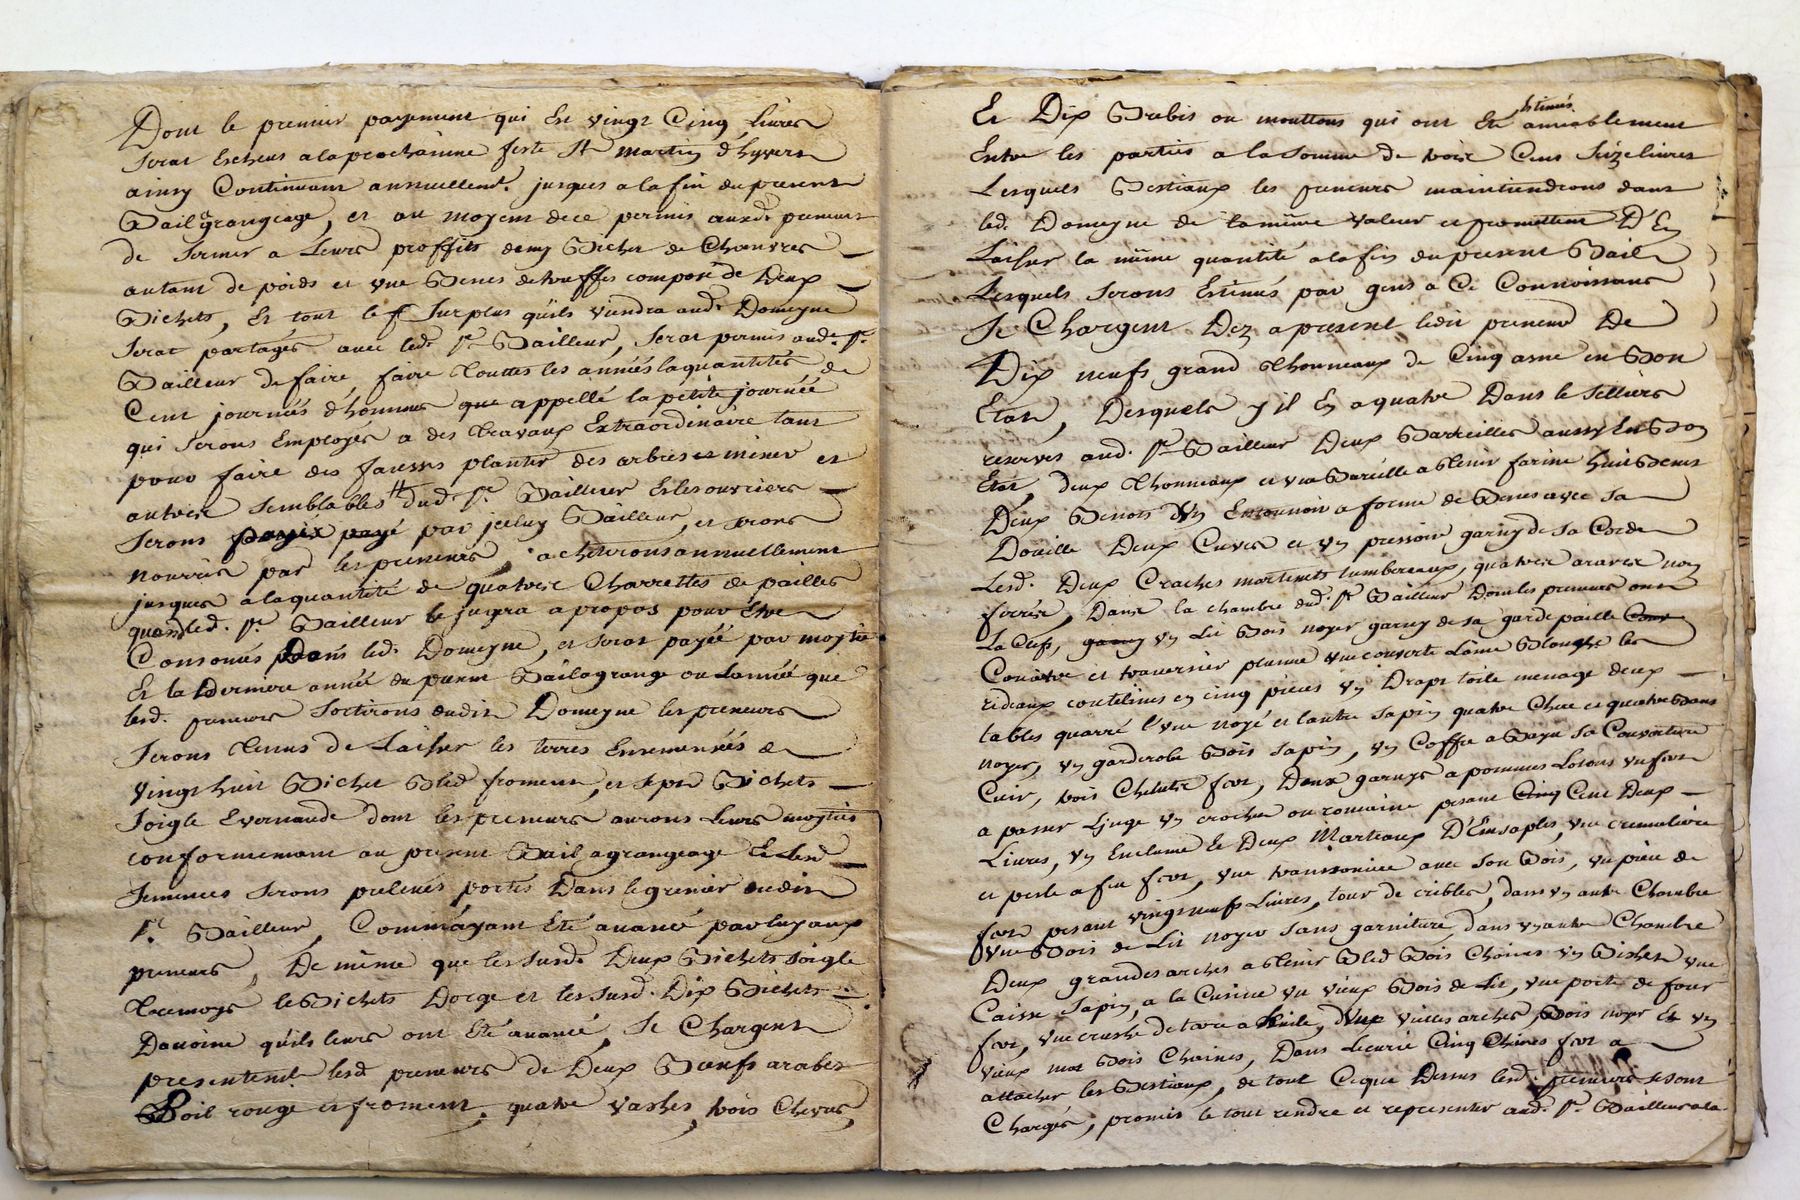 Dont le premier payement qui Est vingt Cinq livres
serat Escheus a la prochainne feste St martin d'hyvert
ainsy Continuant annuellemt. jusques a la fin du present
Bail a grangeage, et au moyent de ce permis auxd. preneurs
de semer a Leurs proffits demy Bichet de Chanvres
autant de poids et une Benes de truffes composé de Deux
Bichets, Et tout le Surplus quils viendra aud. Domeyne
serat partagés avec led. Sr. Bailleur, serat permis aud. Sr.
Bailleur de faire, faire Touttes les années la quantités de
Cent journées d'hommes que appellé la petite journée
qui serons Employés a des Travaux Extraordinaire tant
pour faire des fausses planter des arbres et miner et
autres semblables dud Sr. Bailleur Et les ouvriers
serons payé par jceluy Bailleur, et serons
nourris par les preneurs, acheterons annuellement
jusques a la quantité de quatre Charrettes de pailles
quand led. Sr. Bailleur le jugera a propos pour Etre
Consomés Dans led. Domeyne, et serat payée par moytié
Et la Derniere année du present Bail a grange ou Lannée que
lesd. preneurs sortirons dudit Domeyne les preneurs
serons Tenus de Laisser les terres Ensemensées de
vingt huit Bichet Bled froment, et sept Bichets
soigle dont les preneurs aurons Leurs moytiés
conformement au present Bail a grangeage Et Lesd
semences serons prelevés portés Dans le grenier dudit
Sr. Bailleur, Comme ayant Eté avancé par luy aux
preneurs, De même que les susd. Deux Bichets soigle
Tremoys le Bichets Dorge et les susd. Dix Bichets
Davoine quils leurs ont Eté avancé, se Chargent
presentemt. lesd preneurs de Deux Bœufs arables
Boil rouge et froment, quatre vashes, trois Chevres,
Et Dix Brebis ou mouttons qui ont Eté Estimés amiablement
Entre les parties a la somme de trois Cent seize livres
Lesquels Bestiaux les preneurs maintiendrons dans
led. Domeyne de la même valeur et promettent D'En
Laisser la même quantité a la fin du present Bail
Lesquels serons Estimés par gens a Ce Connoissant
se Chargent Dez a present ledit preneurs De
Dix neufs grand Thonneaux de Cinq asne en Bon
Etat, Desquels y il En a quatre Dans le selliers
reservés aud. Sr. Bailleur Deux Barteilles aussy En Bon
Etat, deux Thonneaux et une Bareille a Tenir farine huit Benes
Deux Benots Un Entonnoir a forme de Benes avec sa
Doüille Deux Cuves et un pressoir garny de sa Corde
Lesd. Deux Craches martinets tumbereaux, quatre araires non
ferrées, Dans la chambre dud. Sr. Bailleur Dont les preneurs ont
La Clefs, un Lit Bois noyer garny de sa garde paille
Couaitre et traversier plume une couverte Laine Blanche les
rideaux en cinq pieces un Drapt toile menage deux
tables quarré l'une noyé et lautre sapin quatre Chese et quatre Bans
noyer, un garderobe Bois sapin, un Coffre a Bayu sa Couverture
Cuir, trois Chelutre fer, Deux garnys a pommes Lotons un fert
a passer Linge un crochu ou romaine pesant Cent Deux
Livres, un Enclume Et Deux Marteaux D'Ensaples, une cremaliere
et perle a feu fer, une avec son Bois, un piece de
fert pesant vingt neufs Livres, tour de cribles, dans un autre Chambre
une Bois de Lit noyer sans garniture, dans un autre Chambre
Deux grandes arches a tenir Bled Bois Chaines un Bichet une
Caisse sapin, a la Cuisine un vieux Bois de Lit, une porte de four
fer, une crushe de terre a huile, Deux vieilles arches, Bois noyer Et un
vieux mat Bois Chaines, Dans Lecurie Cinq Chaines fer a
attacher les Bestiaux, de tout Ceque Dessus lesd. preneurs se sont
Chargés, promis le tout rendre et representer aud. Sr. Bailleur a la